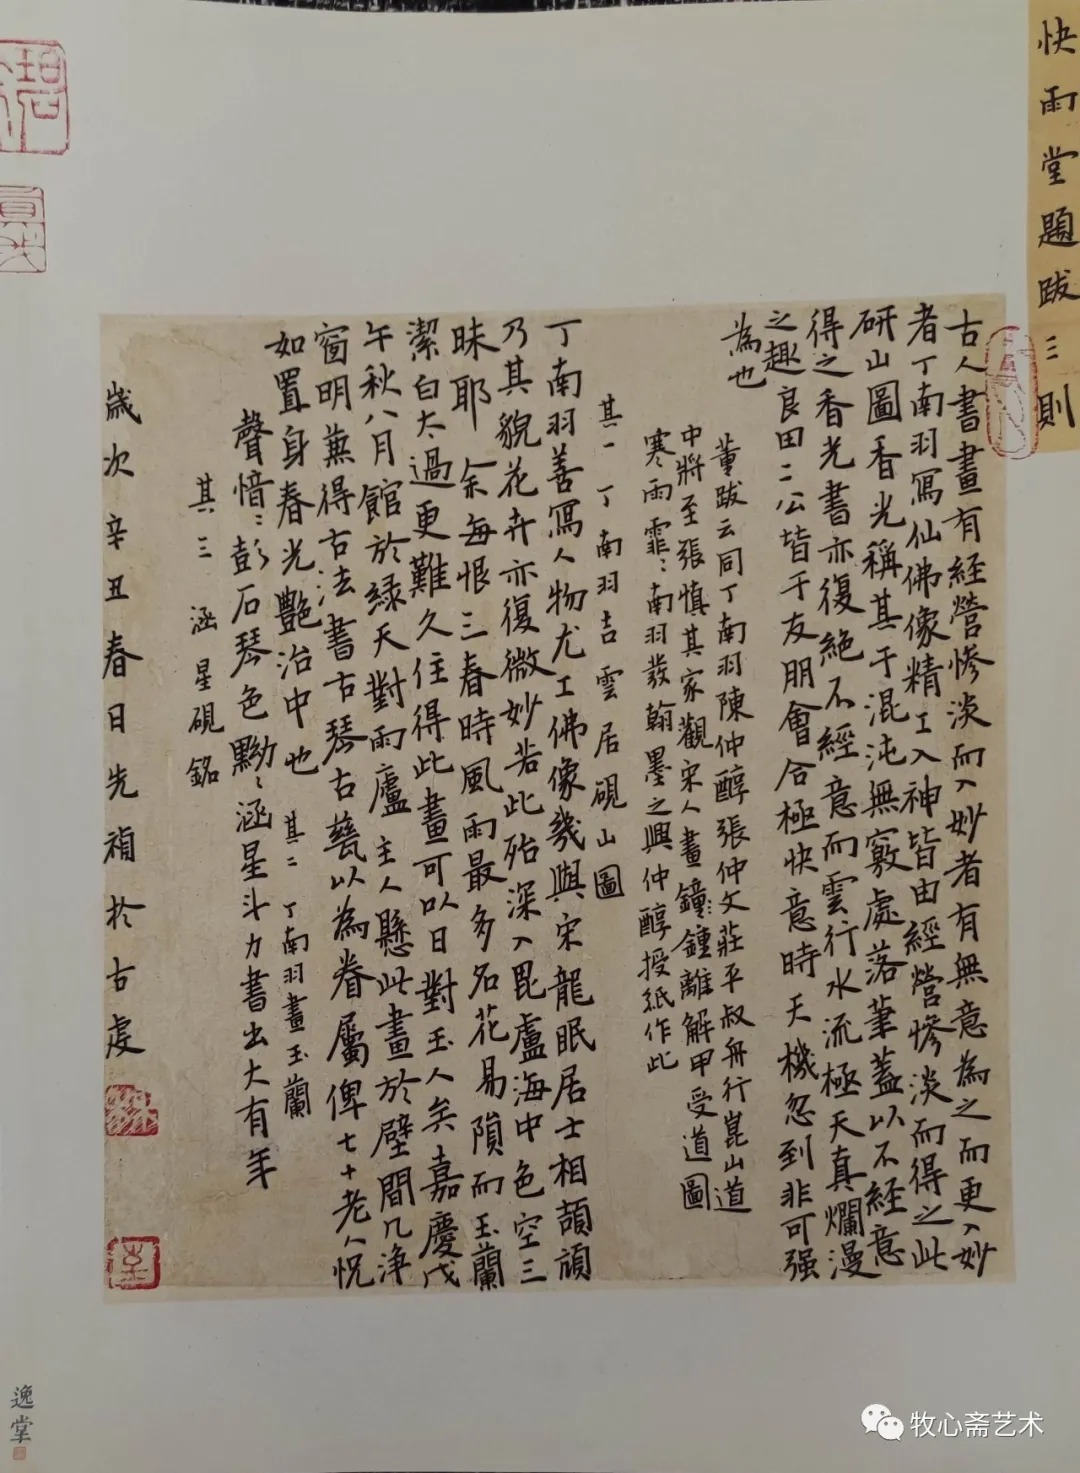 快雨堂題跋三則
古人書畫有經營慘淡而入妙者有無意為之而更入妙
者丁南羽寫仙佛像精工入神皆由經營慘淡而得之此
研山圖香光稱其于混沌無竅處落筆蓋以不經意
得之香光書亦復絕不經意而雲行水流極天真爛漫
之趣良田二公皆于友朋會合極快意時天機忽到非可强
為也
董跋云同丁南羽陳仲醇張仲文莊平叔舟行崑山道
中將至張慎其家觀宋人畫鐘鍾離解甲受道圖
寒雨霏霏南羽發翰墨之興仲醇授紙作此
其一 丁南羽吉雲居硯山圖
丁南羽善寫人物尤工佛像幾與宋龍眠居士相頡頏
乃其貌花卉亦復微妙若此殆深入毘盧海中色空三
昧耶 余每恨三春時風雨最多名花易隕而玉蘭
潔白太過更難久住得此畫可以日對玉人矣嘉慶戊
午秋八月館於緑天對雨廬主人懸此畫於壁間几淨
窗明兼得古法書古琴古甆以為眷屬俾七十老人怳
如置身春光艷冶中也 其二 丁南羽畫玉蘭
聲愔愔彭石琴色黝黝涵星斗力書出大有年
其三 涵星硯銘
歲次辛丑春日先禎於古虔
逸堂
牧心斋艺术